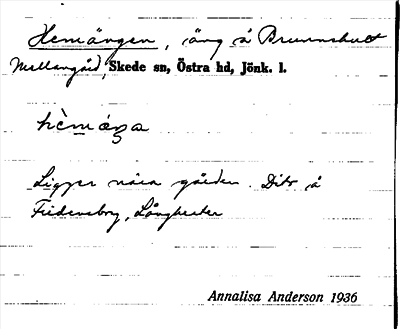 Hemängen, äng å Brunnshult
Mellangård, Skede sn, Östra hd, Jönk. l.
hèmáŋa
Ligger nära gården. Dito å
Fredensborg, Långhester
Annalisa Anderson 1936